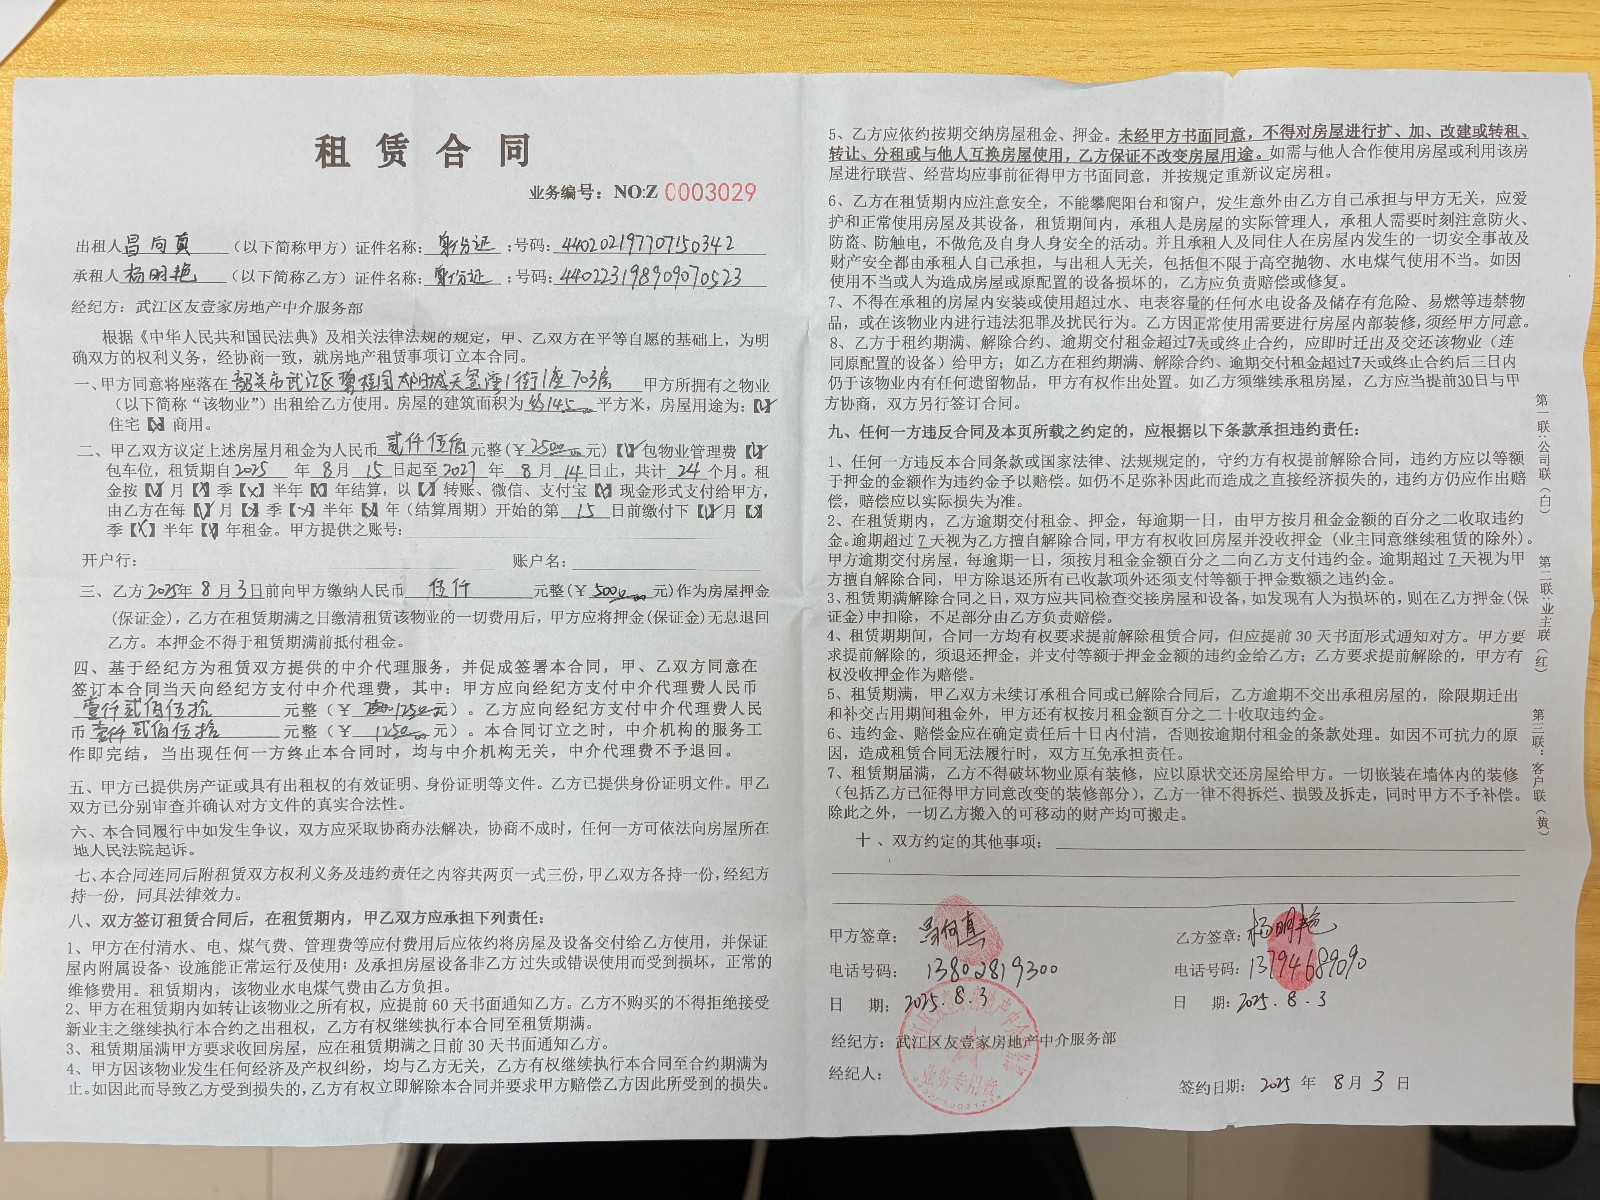 租赁合同
业务编号：NO:Z 0003029
出租人昌向真（以下简称甲方）证件名称：身份证；号码：440202197707150342
承租人杨明艳（以下简称乙方）证件名称：身份证；号码：440223198909070523
经纪方：武江区友壹家房地产中介服务部
根据《中华人民共和国民法典》及相关法律法规的规定，甲、乙双方在平等自愿的基础上，为明
确双方的权利义务，经协商一致，就房地产租赁事项订立本合同。
一、甲方同意将座落在韶关市武江区碧桂园太阳城天玺湾1街1座703房甲方所拥有之物业
（以下简称“该物业”）出租给乙方使用。房屋的建筑面积为约145平方米，房屋用途为：【√】
住宅【×】商用。
二、甲乙双方议定上述房屋月租金为人民币贰仟伍佰元整(￥2500.00元)【√】包物业管理费【√】
包车位，租赁期自2025年8月15日起至2027年8月14日止，共计24个月。租
金按【√】月【×】季【×】半年【×】年结算，以【√】转账、微信、支付宝【×】现金形式支付给甲方，
由乙方在每【√】月【×】季【×】半年【×】年（结算周期）开始的第15日前缴付下【√】月【×】
季【×】半年【×】年租金。甲方提供之账号：
开户行： 账户名：
三、乙方2025年8月3日前向甲方缴纳人民币伍仟元整(￥5000.00元)作为房屋押金
(保证金)，乙方在租赁期满之日缴清租赁该物业的一切费用后，甲方应将押金(保证金)无息退回
乙方。本押金不得于租赁期满前抵付租金。
四、基于经纪方为租赁双方提供的中介代理服务，并促成签署本合同，甲、乙双方同意在
签订本合同当天向经纪方支付中介代理费，其中：甲方应向经纪方支付中介代理费人民币
壹仟贰佰伍拾元整（￥1250元）。乙方应向经纪方支付中介代理费人民
币壹仟贰佰伍拾元整（￥1250.00元）。本合同订立之时，中介机构的服务工
作即完结，当出现任何一方终止本合同时，均与中介机构无关，中介代理费不予退回。
五、甲方已提供房产证或具有出租权的有效证明、身份证明等文件。乙方已提供身份证明文件。甲乙
双方已分别审查并确认对方文件的真实合法性。
六、本合同履行中如发生争议，双方应采取协商办法解决，协商不成时，任何一方可依法向房屋所在
地人民法院起诉。
七、本合同连同后附租赁双方权利义务及违约责任之内容共两页一式三份，甲乙双方各持一份，经纪方
持一份，同具法律效力。
八、双方签订租赁合同后，在租赁期内，甲乙双方应承担下列责任：
1、甲方在付清水、电、煤气费、管理费等应付费用后应依约将房屋及设备交付给乙方使用，并保证
屋内附属设备、设施能正常运行及使用；及承担房屋设备非乙方过失或错误使用而受到损坏，正常的
维修费用。租赁期内，该物业水电煤气费由乙方负担。
2、甲方在租赁期内如转让该物业之所有权，应提前60天书面通知乙方。乙方不购买的不得拒绝接受
新业主之继续执行本合约之出租权，乙方有权继续执行本合同至租赁期满。
3、租赁期届满甲方要求收回房屋，应在租赁期满之日前30天书面通知乙方。
4、甲方因该物业发生任何经济及产权纠纷，均与乙方无关，乙方有权继续执行本合同至合约期满为
止。如因此而导致乙方受到损失的，乙方有权立即解除本合同并要求甲方赔偿乙方因此所受到的损失。
5、乙方应依约按期交纳房屋租金、押金。未经甲方书面同意，不得对房屋进行扩、加、改建或转租、
转让、分租或与他人互换房屋使用，乙方保证不改变房屋用途。如需与他人合作使用房屋或利用该房
屋进行联营、经营均应事前征得甲方书面同意，并按规定重新议定房租。
6、乙方在租赁期内应注意安全，不能攀爬阳台和窗户，发生意外由乙方自己承担与甲方无关，应爱
护和正常使用房屋及其设备，租赁期间内，承租人是房屋的实际管理人，承租人需要时刻注意防火、
防盗、防触电，不做危及自身人身安全的活动。并且承租人及同住人在房屋内发生的一切安全事故及
财产安全都由承租人自己承担，与出租人无关，包括但不限于高空抛物、水电煤气使用不当。如因
使用不当或人为造成房屋或原配置的设备损坏的，乙方应负责赔偿或修复。
7、不得在承租的房屋内安装或使用超过水、电表容量的任何水电设备及储存有危险、易燃等违禁物
品，或在该物业内进行违法犯罪及扰民行为。乙方因正常使用需要进行房屋内部装修，须经甲方同意。
8、乙方于租约期满、解除合约、逾期交付租金超过7天或终止合约，应即时迁出及交还该物业（连
同原配置的设备）给甲方；如乙方在租约期满、解除合约、逾期交付租金超过7天或终止合约后三日内
仍于该物业内有任何遗留物品，甲方有权作出处置。如乙方须继续承租房屋，乙方应当提前30日与甲
方协商，双方另行签订合同。
九、任何一方违反合同及本页所载之约定的，应根据以下条款承担违约责任：
1、任何一方违反本合同条款或国家法律、法规规定的，守约方有权提前解除合同，违约方应以等额
于押金的金额作为违约金予以赔偿。如仍不足弥补因此而造成之直接经济损失的，违约方仍应作出赔
偿，赔偿应以实际损失为准。
2、在租赁期内，乙方逾期交付租金、押金，每逾期一日，由甲方按月租金金额的百分之二收取违约
金。逾期超过7天视为乙方擅自解除合同，甲方有权收回房屋并没收押金（业主同意继续租赁的除外）。
甲方逾期交付房屋，每逾期一日，须按月租金金额百分之二向乙方支付违约金。逾期超过7天视为甲
方擅自解除合同，甲方除退还所有已收款项外还须支付等额于押金数额之违约金。
3、租赁期满解除合同之日，双方应共同检查交接房屋和设备，如发现有人为损坏的，则在乙方押金(保
证金)中扣除，不足部分由乙方负责赔偿。
4、租赁期期间，合同一方均有权要求提前解除租赁合同，但应提前30天书面形式通知对方。甲方要
求提前解除的，须退还押金，并支付等额于押金金额的违约金给乙方；乙方要求提前解除的，甲方有
权没收押金作为赔偿。
5、租赁期满，甲乙双方未续订承租合同或已解除合同后，乙方逾期不交出承租房屋的，除限期迁出
和补交占用期间租金外，甲方还有权按月租金额百分之二十收取违约金。
6、违约金、赔偿金应在确定责任后十日内付清，否则按逾期付租金的条款处理。如因不可抗力的原
因，造成租赁合同无法履行时，双方互免承担责任。
7、租赁期届满，乙方不得破坏物业原有装修，应以原状交还房屋给甲方。一切嵌装在墙体内的装修
（包括乙方已征得甲方同意改变的装修部分），乙方一律不得拆烂、损毁及拆走，同时甲方不予补偿。
除此之外，一切乙方搬入的可移动的财产均可搬走。
十、双方约定的其他事项：
甲方签章：昌向真 乙方签章：杨明艳
电话号码：13802819300 电话号码：13794689090
日期：2025.8.3 日期：2025.8.3
经纪方：武江区友壹家房地产中介服务部
经纪人：
业务专用章
签约日期：2025年8月3日
第一联：公司联（白）
第二联：业主联（红）
第三联：客户联（黄）